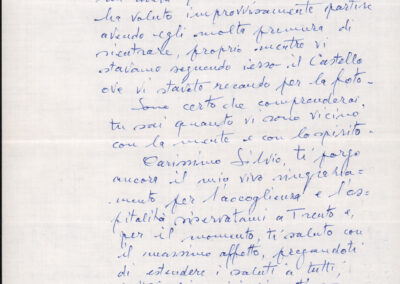 ha voluto improvvisamente partire
avendo egli molta premura di
rientrare, proprio mentre vi
stavamo seguendo verso il Castello
ove vi stavate recando per la foto.
Sono certo che comprenderai,
tu sai quanto vi sono vicino
con la mente e con lo spirito.
Carissimo Silvio, ti porgo
ancora il mio vivo ringrazia-
mento per l'accoglienza e l'os-
pitalità riservatami a Trento e,
per il momento, ti saluto con
il massimo affetto, pregandoti
di estendere i saluti a tutti,